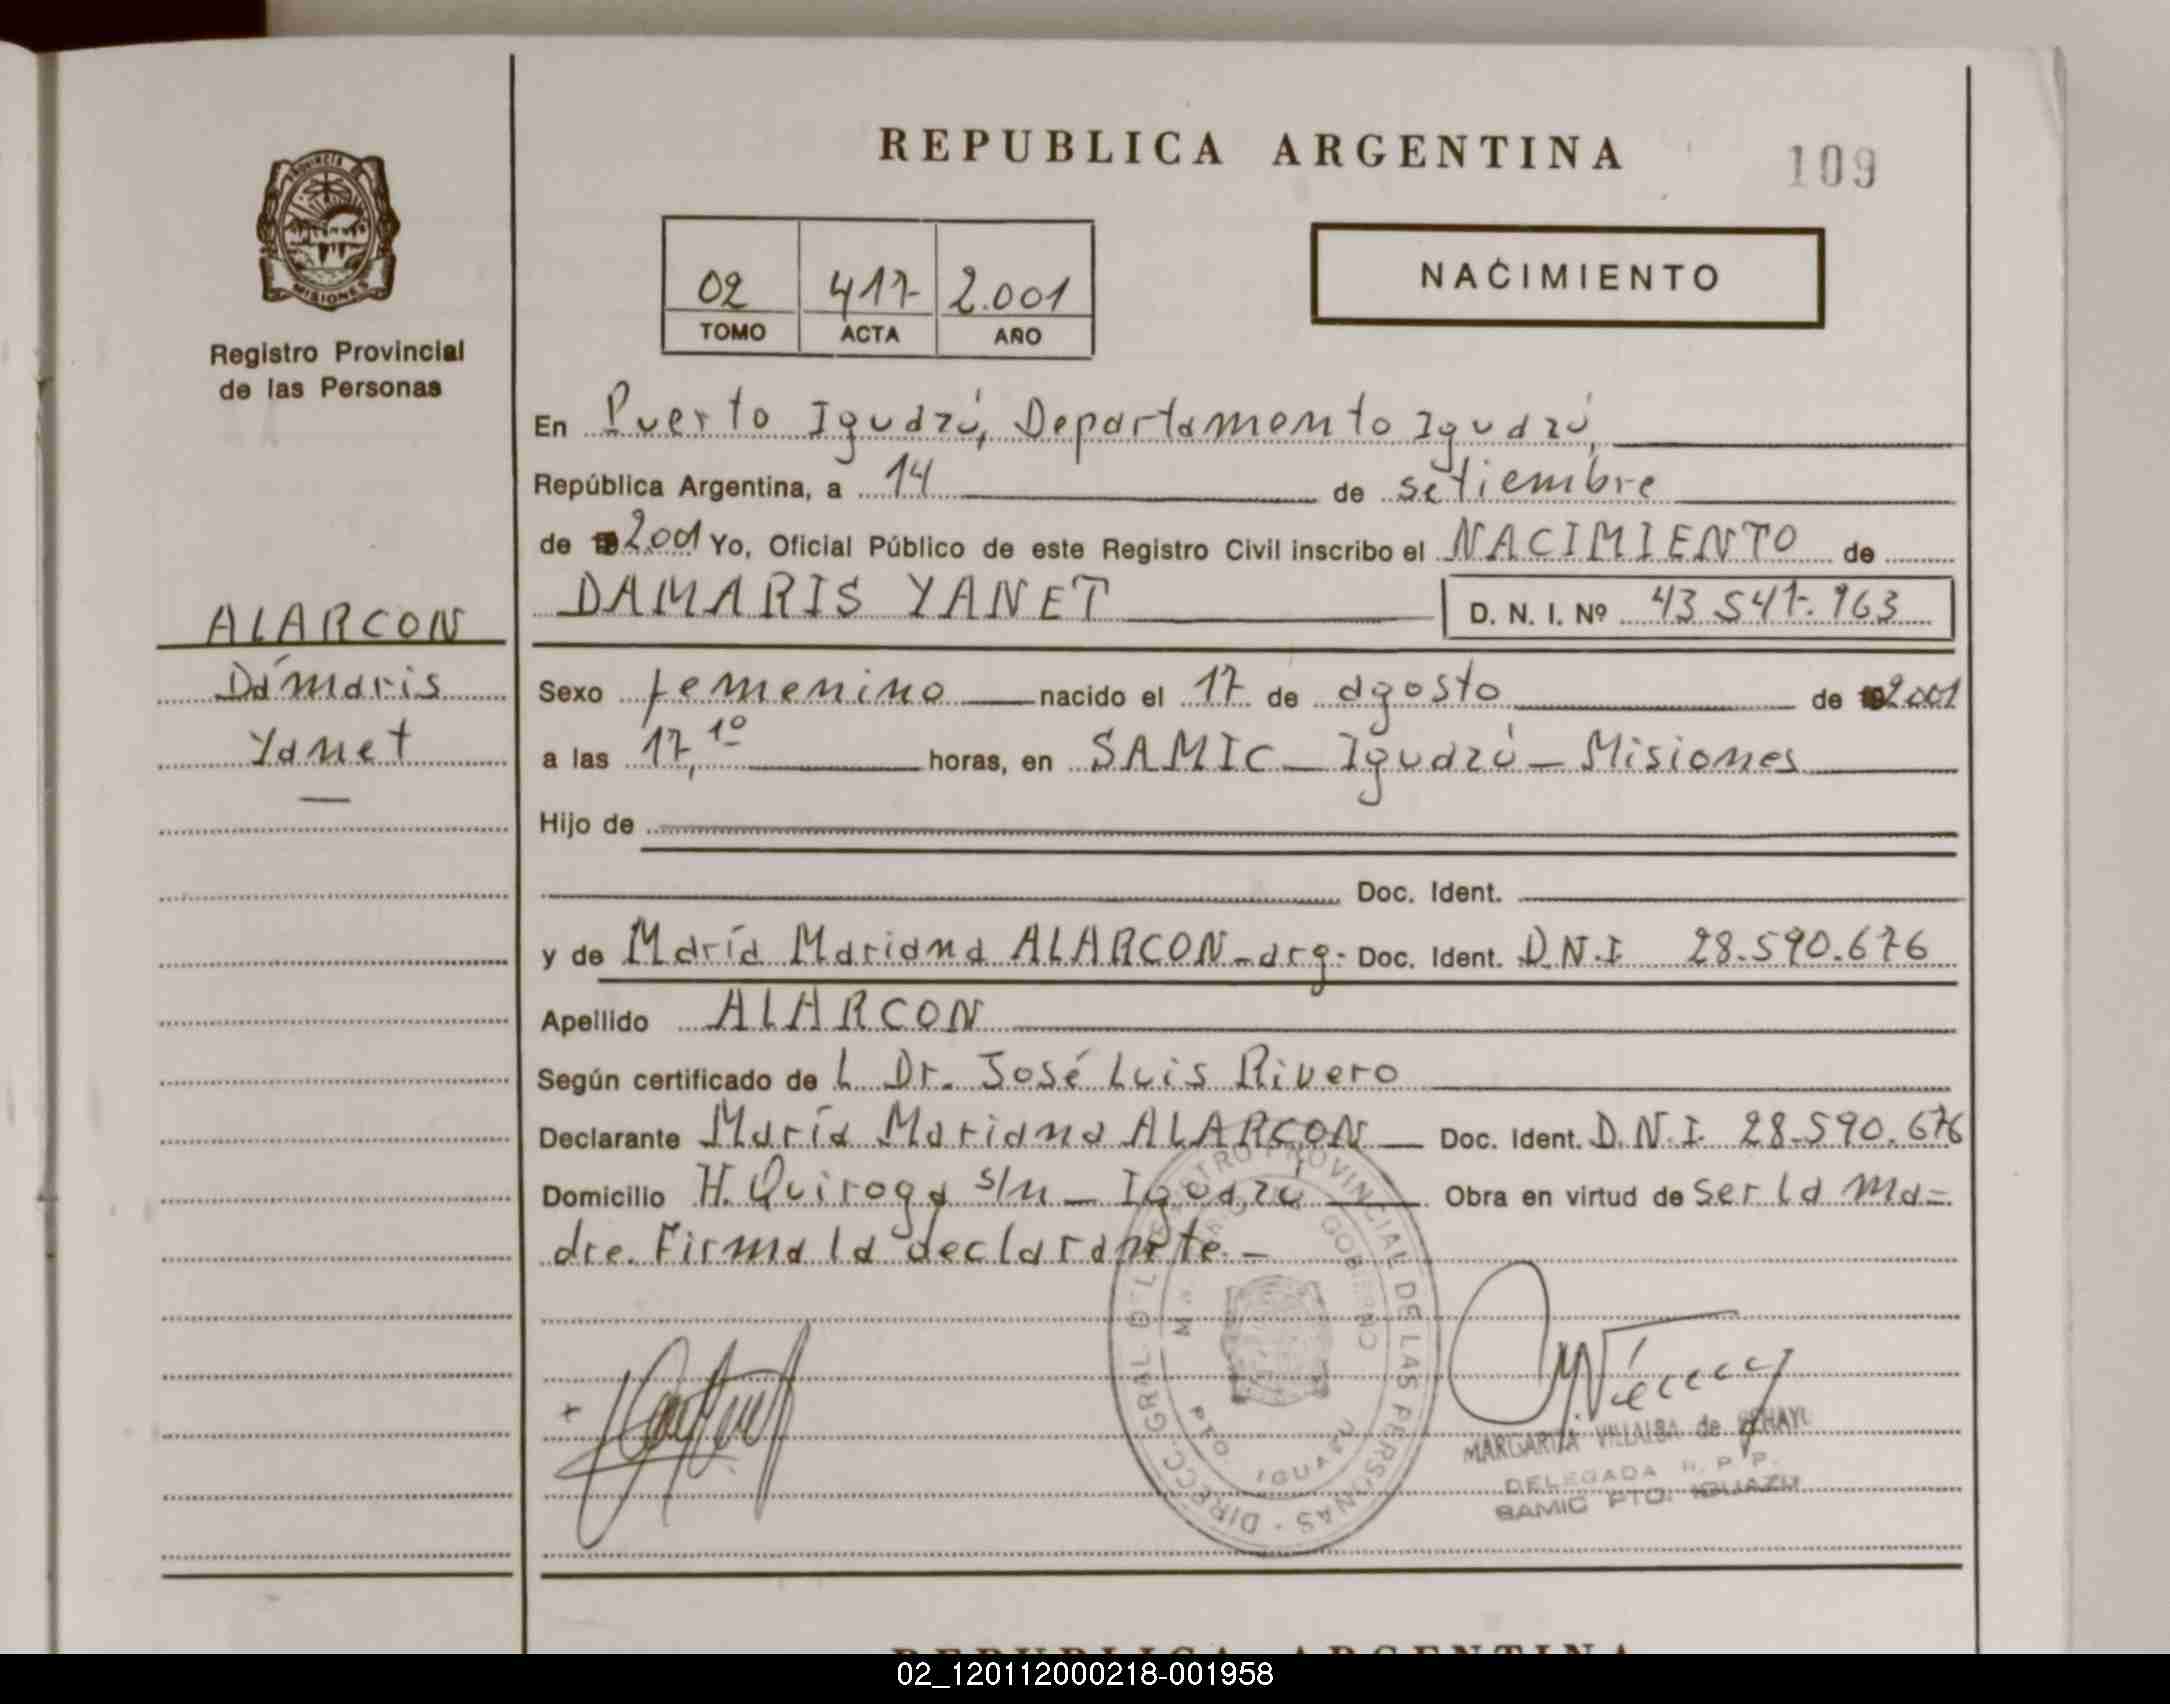 REPUBLICA ARGENTINA
109
PROVINCIA DE
MISIONES
Registro Provincial
de las Personas
02 417 2.001
TOMO ACTA AÑO
NACIMIENTO
En Puerto Iguazú, Departamento Iguazú,
República Argentina, a 14 de setiembre
de 2001 Yo, Oficial Público de este Registro Civil inscribo el NACIMIENTO de
DAMARIS YANET D. N. I. Nº 43.547.963
ALARCON
Dámaris
Yanet
Sexo femenino nacido el 17 de agosto de 2001
a las 17,10 horas, en SAMIC - Iguazú - Misiones
Hijo de
Doc. Ident.
y de María Mariana ALARCON - arg- Doc. Ident. D.N.I 28.590.676
Apellido ALARCON
Según certificado de L Dr. José Luis Rivero
Declarante María Mariana ALARCON Doc. Ident. D.N.I. 28.590.676
Domicilio H. Quiroga s/n - Iguazú Obra en virtud de ser la ma=
dre. Firma la declarante.-
DIRECC. GRAL DEL REGISTRO PROVINCIAL DE LAS PERSONAS
GOBIERNO
PTO IGUAZU
MARGARITA VILLALBA de
DELEGADA R. P. P.
SAMIC PTO. IGUAZU
REPUBLICA ARGENTINA
02_120112000218-001958